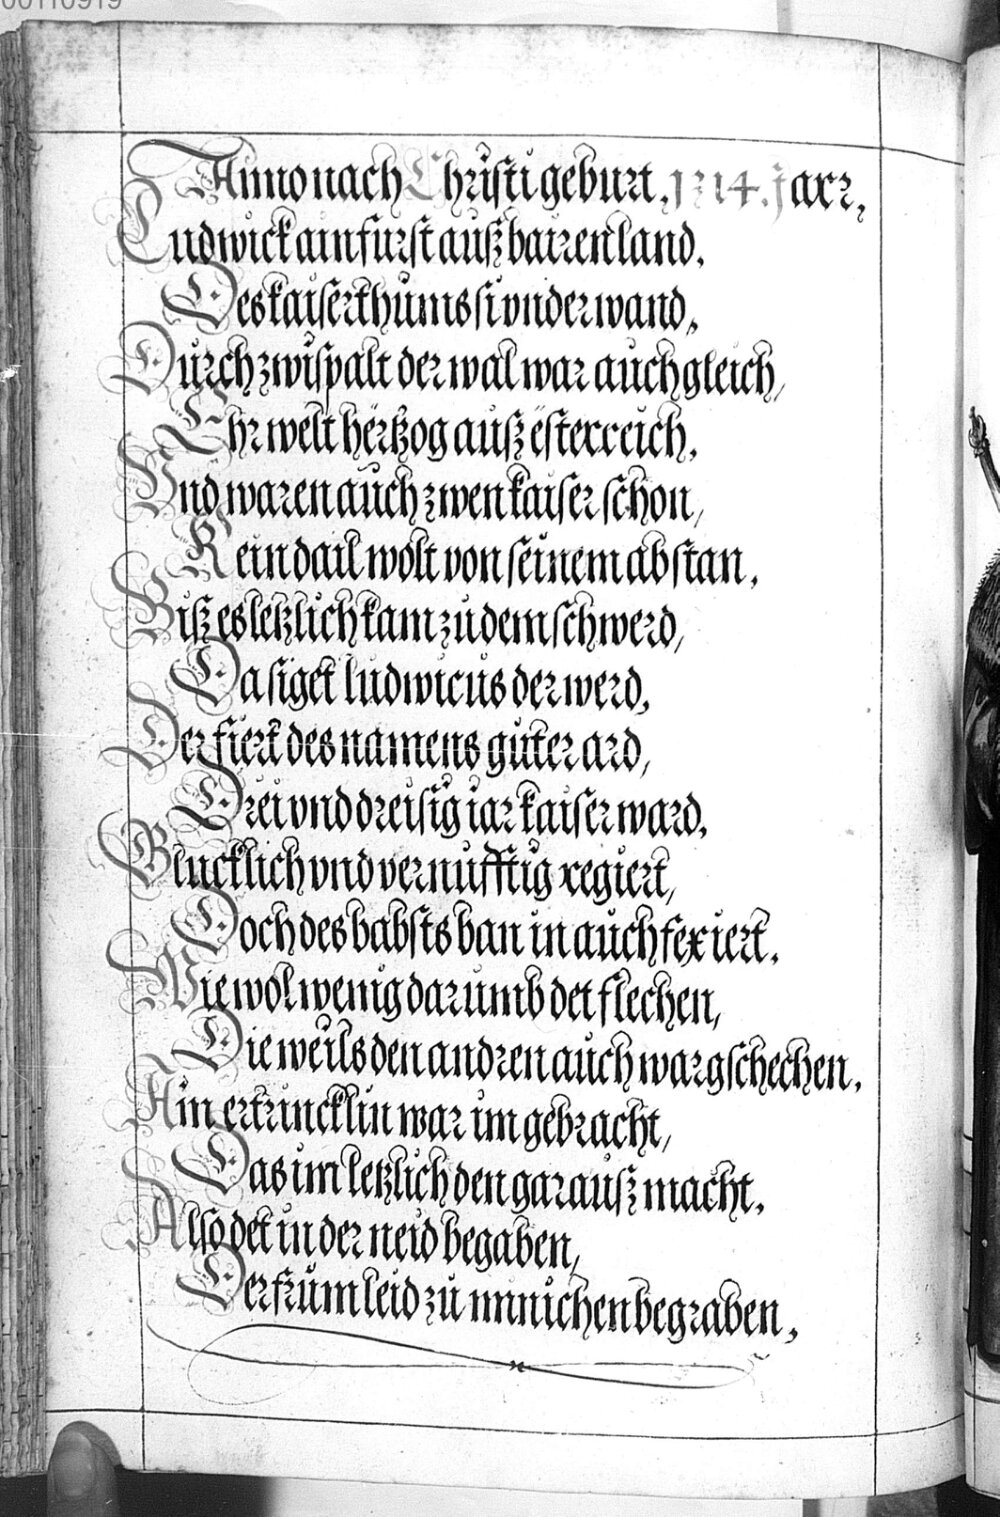 00110919
Anno nach Christi geburt, 1314. Jarr,
Ludwick ain fürst auß bairen land,
Des kaiserthums si vnderwand,
Durch zwispalt der wal war auch gleich,
Ehr welt hertzog auß ësterreich,
Vnd waren auch zwen kaiser schon,
Kein dail wolt von seinem abstan,
Biß es letzlich kam zu dem schwerd,
Da siget ludwicus der werd,
Der fiert des namens guter ard,
Drei vnd dreisig iar kaiser ward,
Glucklich vnd vernufftig regiert,
Doch des babsts ban in auch fexiert,
Wie wol wenig darumb det flechen,
Die weils den andren auch war gschechen,
Ain ertrincklin war im gebracht,
Das im letzlich den garauß macht,
Also det in der neid begaben,
Der frum leid zu minichen begraben,